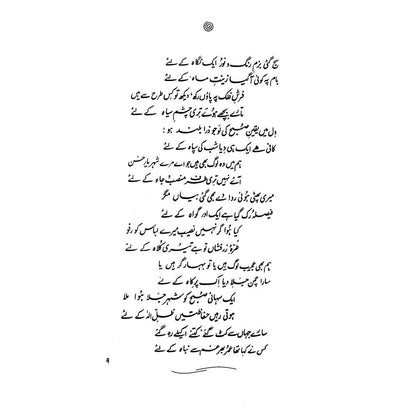 سج گئی بزمِ رنگ و نور ایک نگاہ کے لئے
بام پہ کوئی آگیا زینتِ ماہ کے لئے
فرشِ فلک پہ پاؤں رکھ، دیکھ تو کس طرح سے ہیں
مارے پیچھے ہوئے تری چشمِ سیاہ کے لئے
دل میں یقینِ صبح کی لو جو ذرا بلند ہو
کافی ہے ایک ہی دیا شب کی سپاہ کے لئے
ہم میں وہ لوگ بھی ہیں جو اے مرے شہریارِ حسن
آئے نہیں تری طرف منصب و جاہ کے لئے
میری پھٹی ہوئی ردا اے بھی گئی بیاں مگر
فیصلہ رک گیا ہے ایک اور گواہ کے لئے
کیا ہوا گر نہیں نصیب میرے لباس کو رفو
طرۂ زرفشاں تو ہے تیری کلاہ کے لئے
ہم بھی عجیب لوگ ہیں یا تو بہار گر ہیں یا
سارا چمن جلا دیا اک پرِ کاہ کے لئے
ایک سہانی صبح کو شہر جلا ہوا ملا
ہوتی رہیں حفاظتیں ظلِ الٰہ کے لئے
سارے جہاں سے کٹ گئے کتنے اکیلے رہ گئے
کس نے کہا تھا عمر بھر غم سے نباہ کے لئے
۹